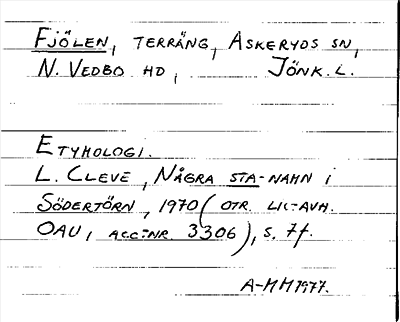 FJÖLEN, TERRÄNG, ASKERYDS SN,
N. VEDBO HD, JÖNK. L.
ETYMOLOGI.
L. CLEVE, NÅGRA STA-NAMN I
SÖDERTÖRN, 1970 (OTR. LIC-AVH.
OAU, ACC-NR. 3306), S. 7f.
A-MM 1977.